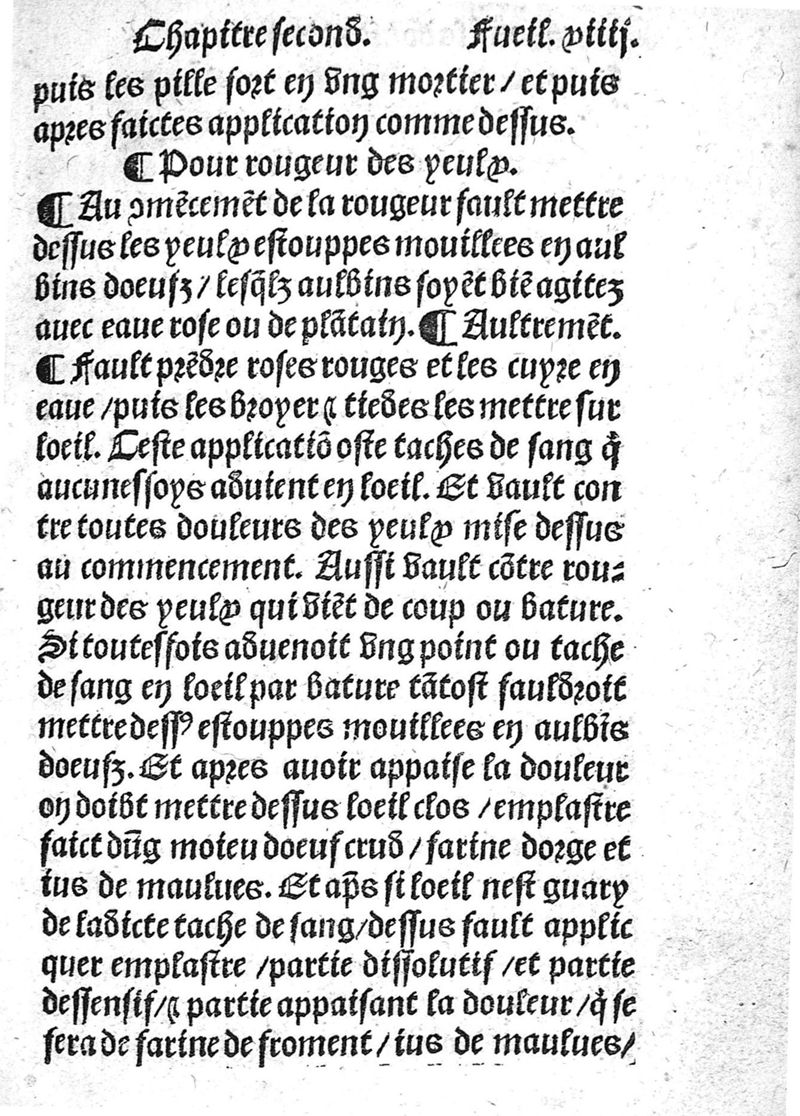 Chapitre second. Fueil. viiij.
puis les pille fort en vng mortier / et puis
apres faictes application comme dessus.
¶ Pour rougeur des yeulx.
¶ Au ꝯmēcemēt de la rougeur fault mettre
dessus les yeulx estouppes mouillees en aul
bins doeufz / lesq̄lz aulbins soyēt biē agitez
auec eaue rose ou de plātain. ¶ Aultremēt.
¶ Fault prēdre roses rouges et les cuyre en
eaue / puis les broyer ⁊ tiedes les mettre sur
loeil. Ceste applicatiō oste taches de sang q̄
aucunesfoys aduient en loeil. Et vault con
tre toutes douleurs des yeulx mise dessus
au commencement. Aussi vault cōtre rou-
geur des yeulx qui viēt de coup ou bature.
Si toutesfois aduenoit vng point ou tache
de sang en loeil par bature tātost fauldroit
mettre dessꝰ estouppes mouillees en aulbīs
doeufz. Et apres auoir appaise la douleur
on doibt mettre dessus loeil clos / emplastre
faict dūg moieu doeuf crud / farine dorge et
ius de maulues. Et ap̄s si loeil nest guary
de ladicte tache de sang / dessus fault applic
quer emplastre / partie dissolutif / et partie
deffensif / ⁊ partie appaisant la douleur / q̄ se
fera de farine de froment / ius de maulues /